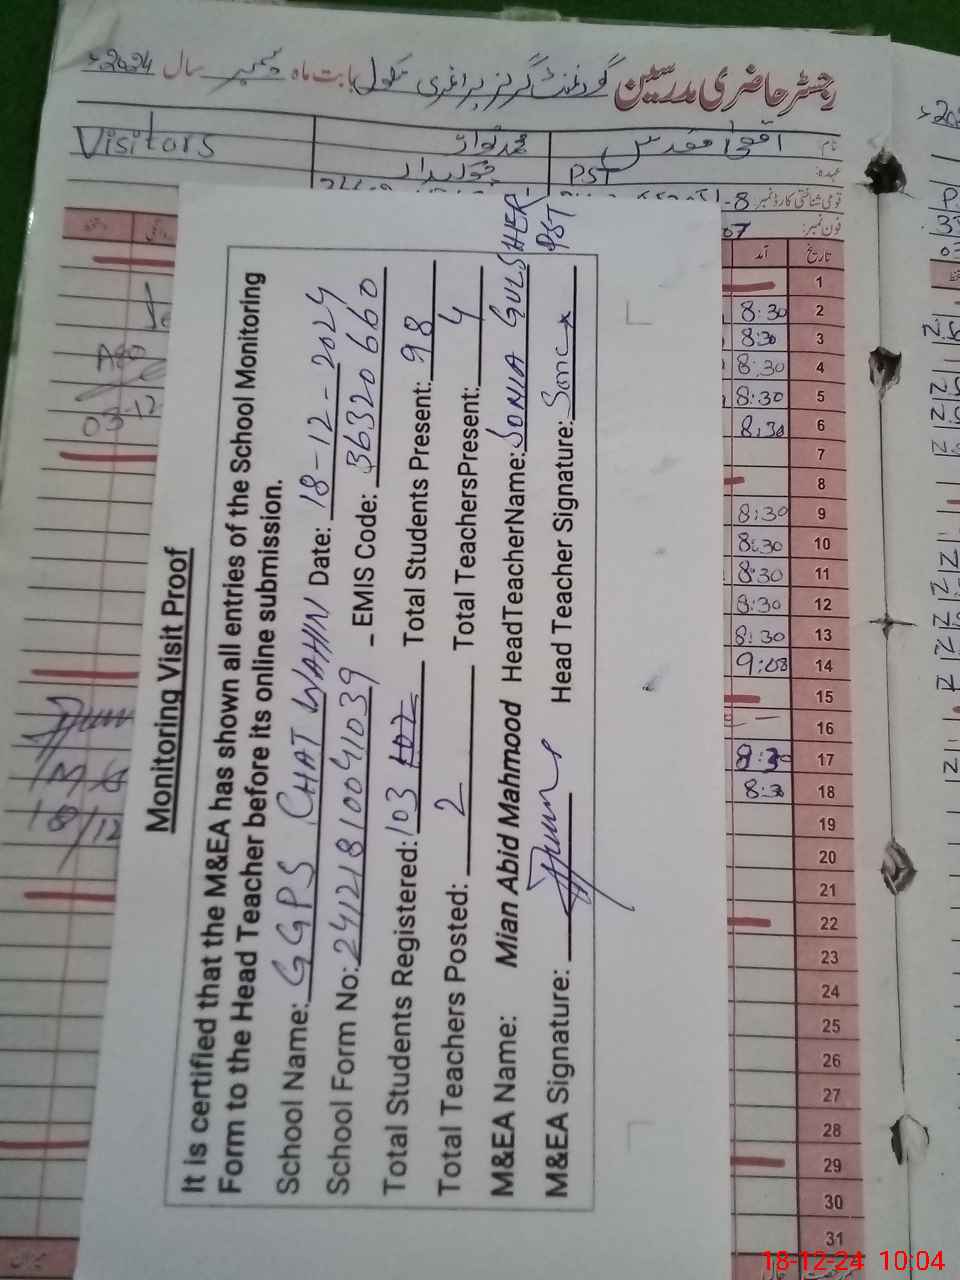 رجسٹر حاضری مدرسین گورنمنٹ گرلز پرائمری سکول بابت ماہ دسمبر سال 2024
نام اقصیٰ مقدس محمد نواز Visitors
عہدہ: PST چوکیدار
قومی شناختی کارڈ نمبر
فون نمبر:
تاریخ آمد
1
2 8:30
3 8:30
4 8:30
5 8:30
6 8:30
7
8
9 8:30
10 8:30
11 8:30
12 8:30
13 8:30
14 9:08
15
16
17 8:30
18 8:30
19
20
21
22
23
24
25
26
27
28
29
30
31
03-12
18/12
Monitoring Visit Proof
It is certified that the M&EA has shown all entries of the School Monitoring
Form to the Head Teacher before its online submission.
School Name: GGPS CHAT WAHIN Date: 18-12-2024
School Form No: 24121810041039 - EMIS Code: 36320660
Total Students Registered: 103 102 Total Students Present: 98
Total Teachers Posted: 2 Total TeachersPresent: 4
M&EA Name: Mian Abid Mahmood HeadTeacherName: SONIA GULSHER PST
M&EA Signature: Head Teacher Signature:
18-12-24 10:04